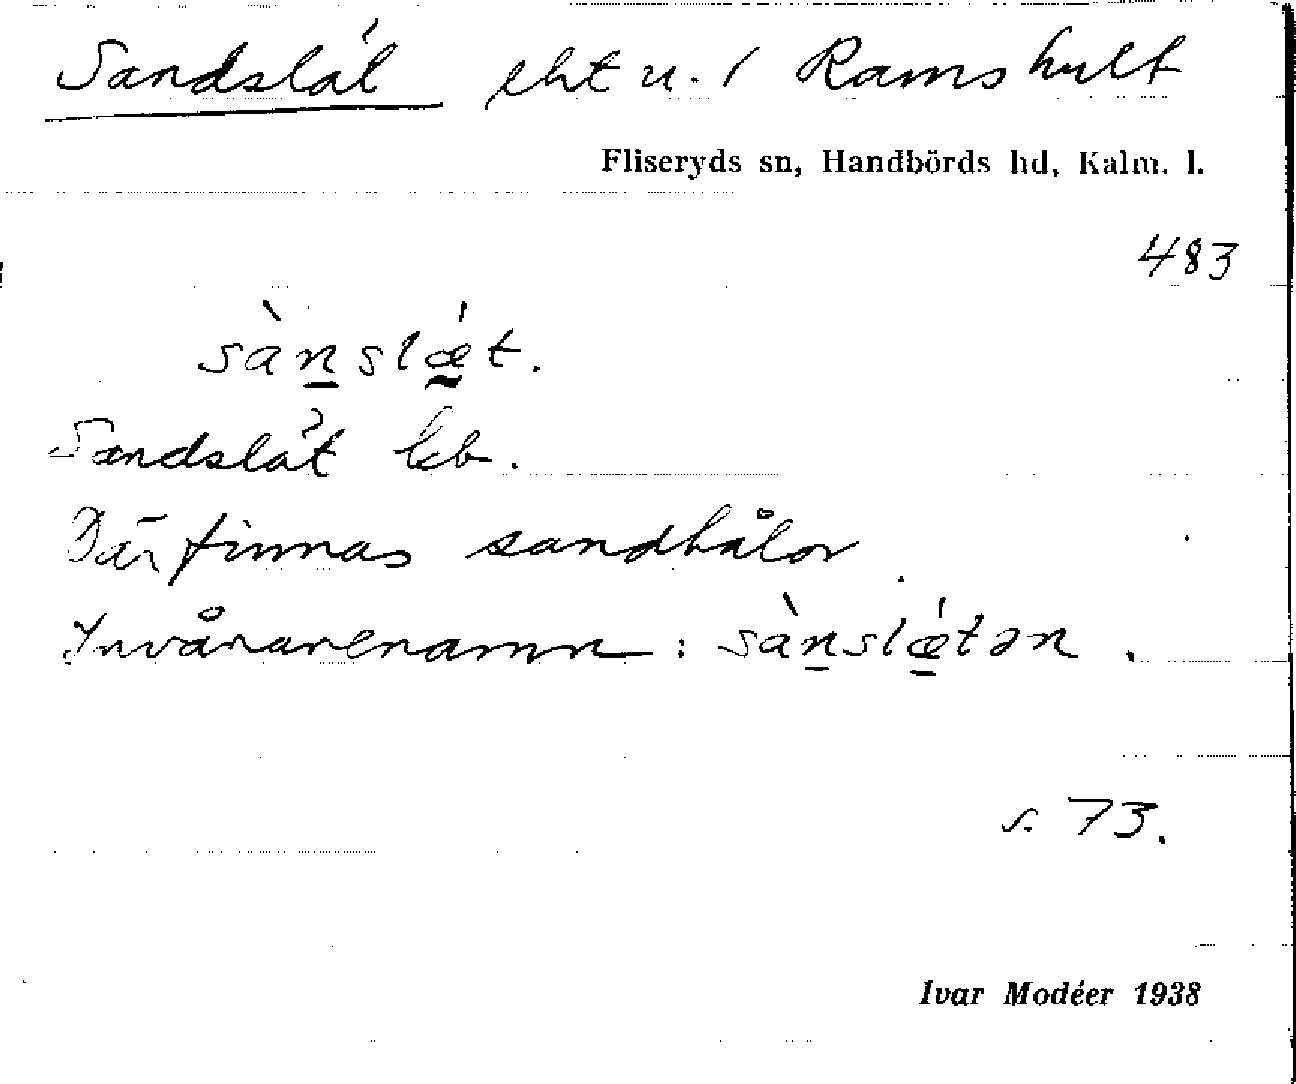 Sandslät eht u. / Ramshult
Fliseryds sn, Handbörds hd, Kalm. l.
483
sànslǽt.
Sandslät kb.
Där finnas sandhålor.
Invånarenamn : sànslǽtən.
s. 73.
Ivar Modéer 1938